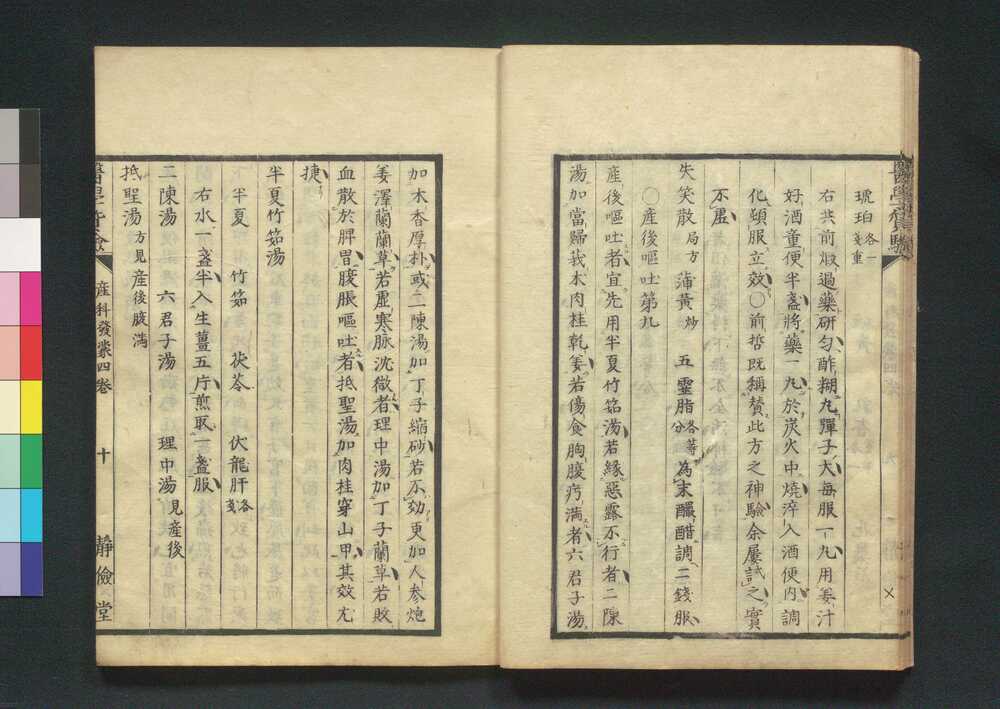 琥珀各一戔重
右共前煅過藥研匀酢糊丸彈子大每服一丸用姜汁
好酒童便半盞將藥一丸於炭火中燒淬入酒便内調
化頓服立效〇前哲既稱賛此方之神驗余屢試之實
不虚
失笑散局方 蒲黄炒 五靈脂各等分 為末釅醋調二錢服
〇産後嘔吐第九
産後嘔吐者宜先用半夏竹筎湯若縁惡露不行者二陳
湯加當歸莪朮肉桂乾姜若傷食胸腹疞満者六君子湯
加木香厚朴或二陳湯加丁子縮砂若不効更加人参炮
姜澤蘭蘭草若虚寒脉沈微者理中湯加丁子蘭草若敗
血散於脾胃腹脹嘔吐者抵聖湯加肉桂穿山甲其效尤
捷
半夏竹筎湯
半夏 竹筎 茯苓 伏龍肝各戔
右水一盞半入生薑五片煎取一盞服
二陳湯 六君子湯 理中湯見産後
抵聖湯方見産後腹満
産科發蒙四卷 十 静儉堂